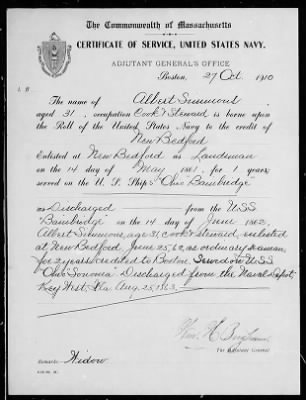 The Commonwealth of Massachusetts
CERTIFICATE OF SERVICE, UNITED STATES NAVY.
ADJUTANT GENERAL'S OFFICE
Boston, 27 Oct. 1910
The name of Albert Simmons,
aged 31, occupation Cook & Steward is borne upon
the Roll of the United States Navy to the credit of
New Bedford
Enlisted at New Bedford as Landsman
on the 14 day of May 1861 for 1 years;
served on the U. S. Ships "Ohio" "Bainbridge"
was Discharged from the U.S.S.
"Bainbridge" on the 14 day of June 1862.
Albert Simmons, age 31, cook & steward, enlisted
at New Bedford, June 25, 62, as ordinary seaman,
for 2 years, credited to Boston. Served on U.S.S.
"Ohio" "Sonoma" Discharged from the Naval Depot,
Key West, Fla. Aug. 25, 1863.
The Adjutant General
Remarks: Widow